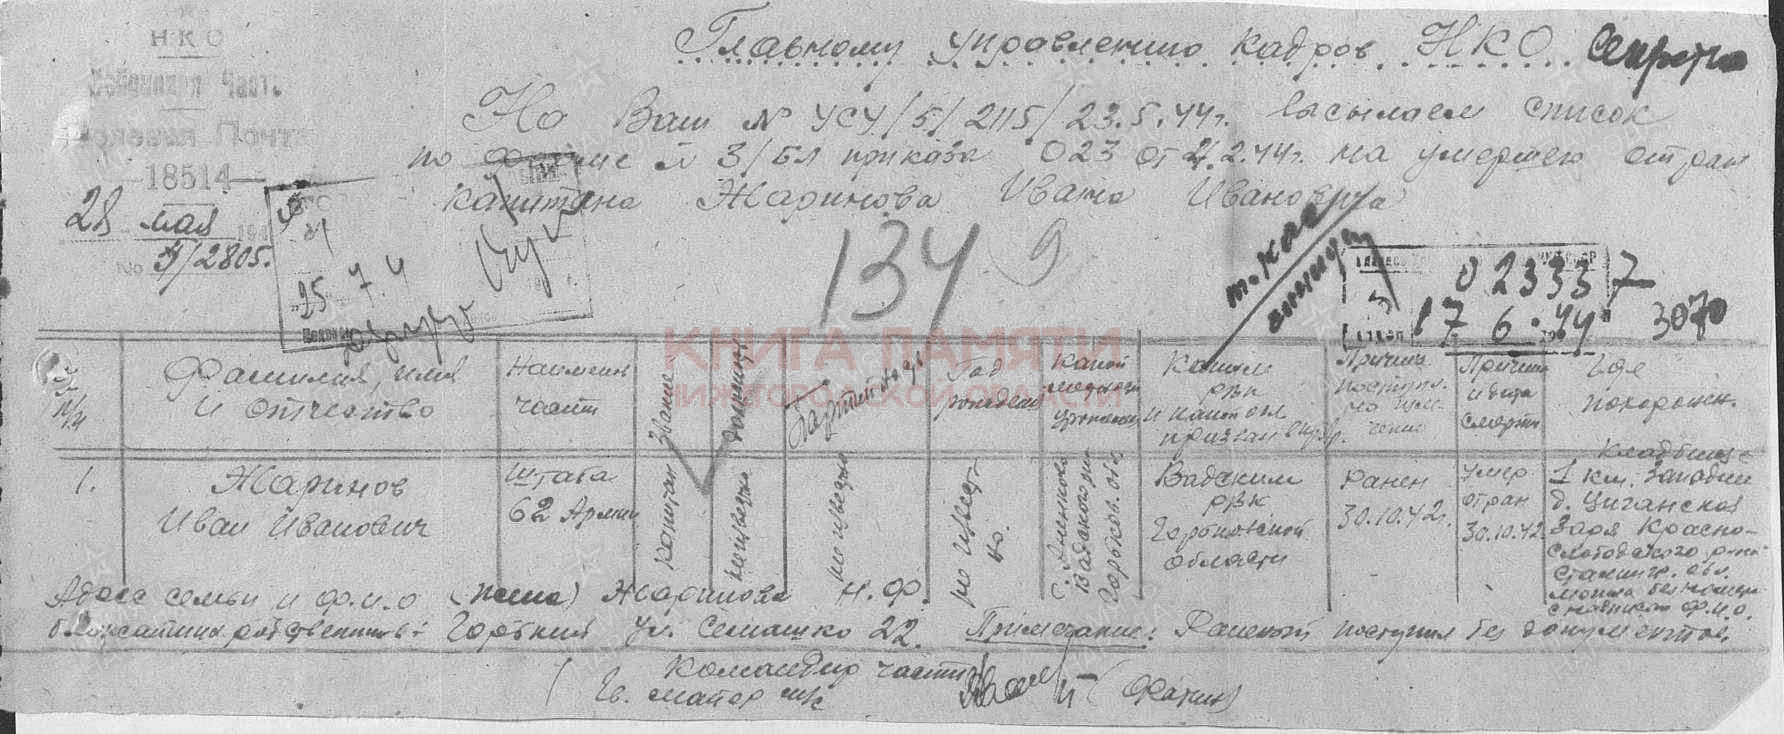 НКО
Войсковая Часть
Полевая Почта
18514
28 мая 194
№ 3/2805.
Главному управлению кадров НКО Секретно
На Ваш № УСУ/5/2115/23.5.44г. высылаем список
по форме № 3/БЛ приказа 023 от 2.44г. на умершего от ран
капитана Жаринова Ивана Ивановича
25 7.4
134
9
02333 7
17 6. 44 3070
КНИГА ПАМЯТИ
НИЖЕГОРОДСКОЙ ОБЛАСТИ
Фамилия, имя и отчество
Наименов. части
Звание
должность
Партийность
Год рождения
Какой местности уроженец
Каким РВК и какой обл. призван
Причина поступл. на изле-чение
Причина и дата смерти
Где похоронен.
1.
Жаринов Иван Иванович
Штаба 62 Армии
капитан
неизвестна
неизвестна
неизвестно.
с. Аненково Вадского р-на Горьков. обл.
Вадским РВК Горьковской области
Ранен 30.10.42г.
Умер от ран 30.10.42
Кладбище 1 км. западнее д. Цыганская Заря Красно-слободского р-на Сталингр. обл.
Адрес семьи и ф.и.о (жена) Жаринова Н.Ф.
ближайших родственников: Горький ул. Семашко 22. Примечание: Раненый поступил без документов.
Командир части
Гв. майор м/с